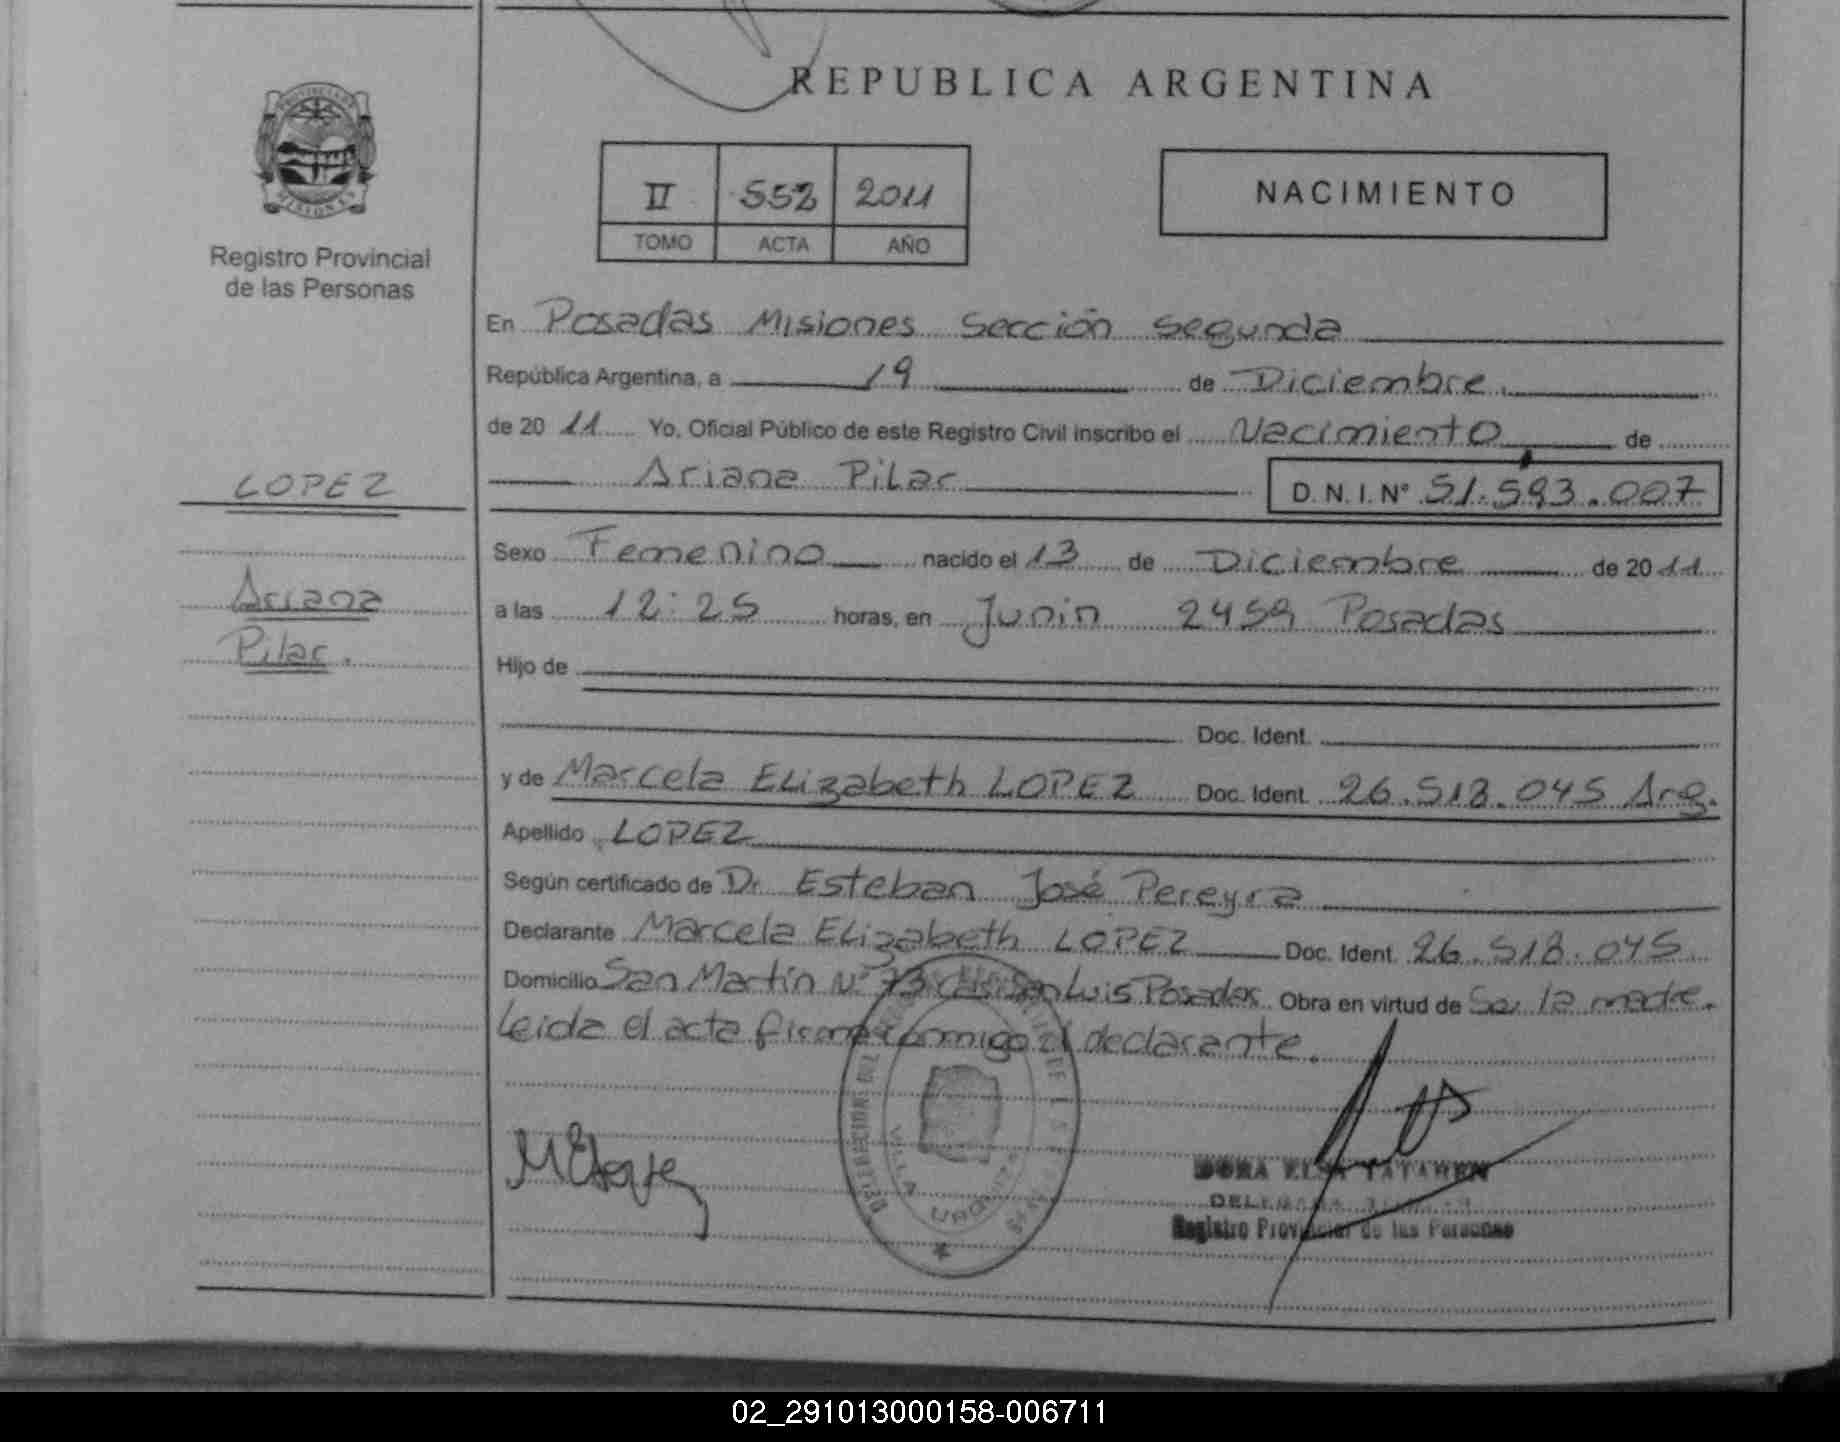 REPUBLICA ARGENTINA
PROVINCIA DE
MISIONES
Registro Provincial
de las Personas
II 552 2011
TOMO ACTA AÑO
NACIMIENTO
En Posadas Misiones Sección Segunda
República Argentina, a 19 de Diciembre.
de 2011 Yo, Oficial Público de este Registro Civil inscribo el Nacimiento de
Ariana Pilar D.N.I. Nº 51.593.007
LOPEZ
Ariana
Pilar.
Sexo Femenino nacido el 13 de Diciembre de 2011
a las 12:25 horas, en Junin 2459 Posadas
Hijo de
Doc. Ident.
y de Marcela Elizabeth LOPEZ Doc. Ident. 26.518.045 Arg.
Apellido LOPEZ
Según certificado de Dr. Esteban José Pereyra
Declarante Marcela Elizabeth LOPEZ Doc. Ident. 26.518.045
Domicilio San Martín Nº 73 San Luis Posadas Obra en virtud de Ser la madre.
Leida el acta firma conmigo el declarante.
DELEGACION DEL
VILLA URQUIZA
DORA ELSA
Registro Provincial de las Personas
02_291013000158-006711